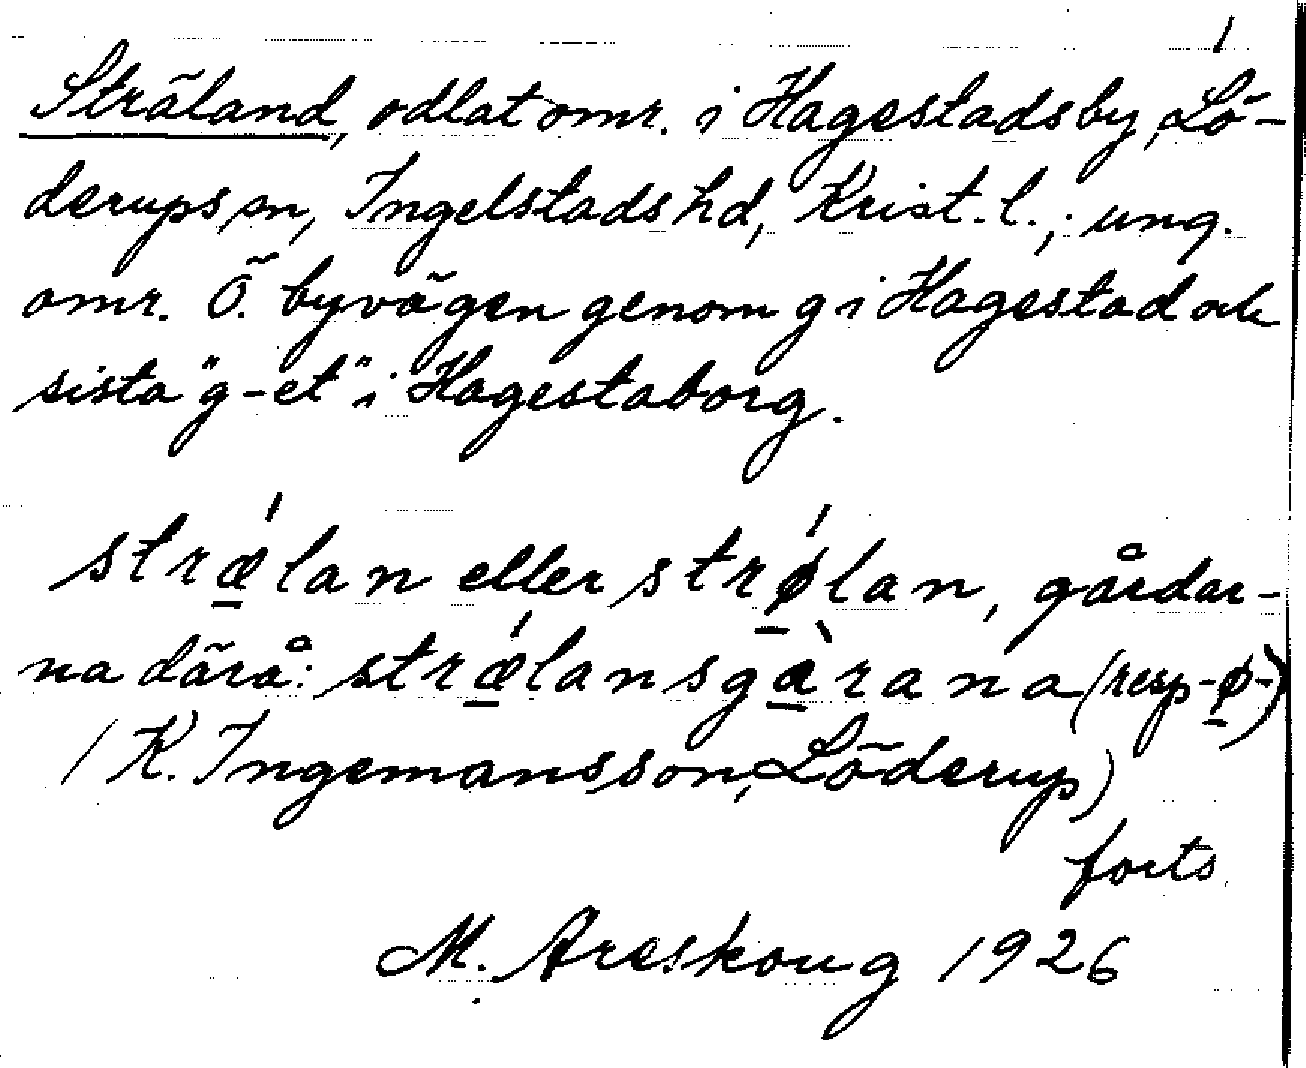 1
Sträland, odlat omr. i Hagestads by, Lö-
derups sn, Ingelstads hd, Krist. l.; ung.
omr. Ö. byvägen genom g i Hagestad och
sista "g-et" i Hagestaborg.
strǽ̠lan eller strǿ̠lan, gårdar-
na därå: strǽ̠lansgà̠rana (resp -ø̠-)
(K. Ingemansson, Löderup)
forts.
M. Areskoug 1926